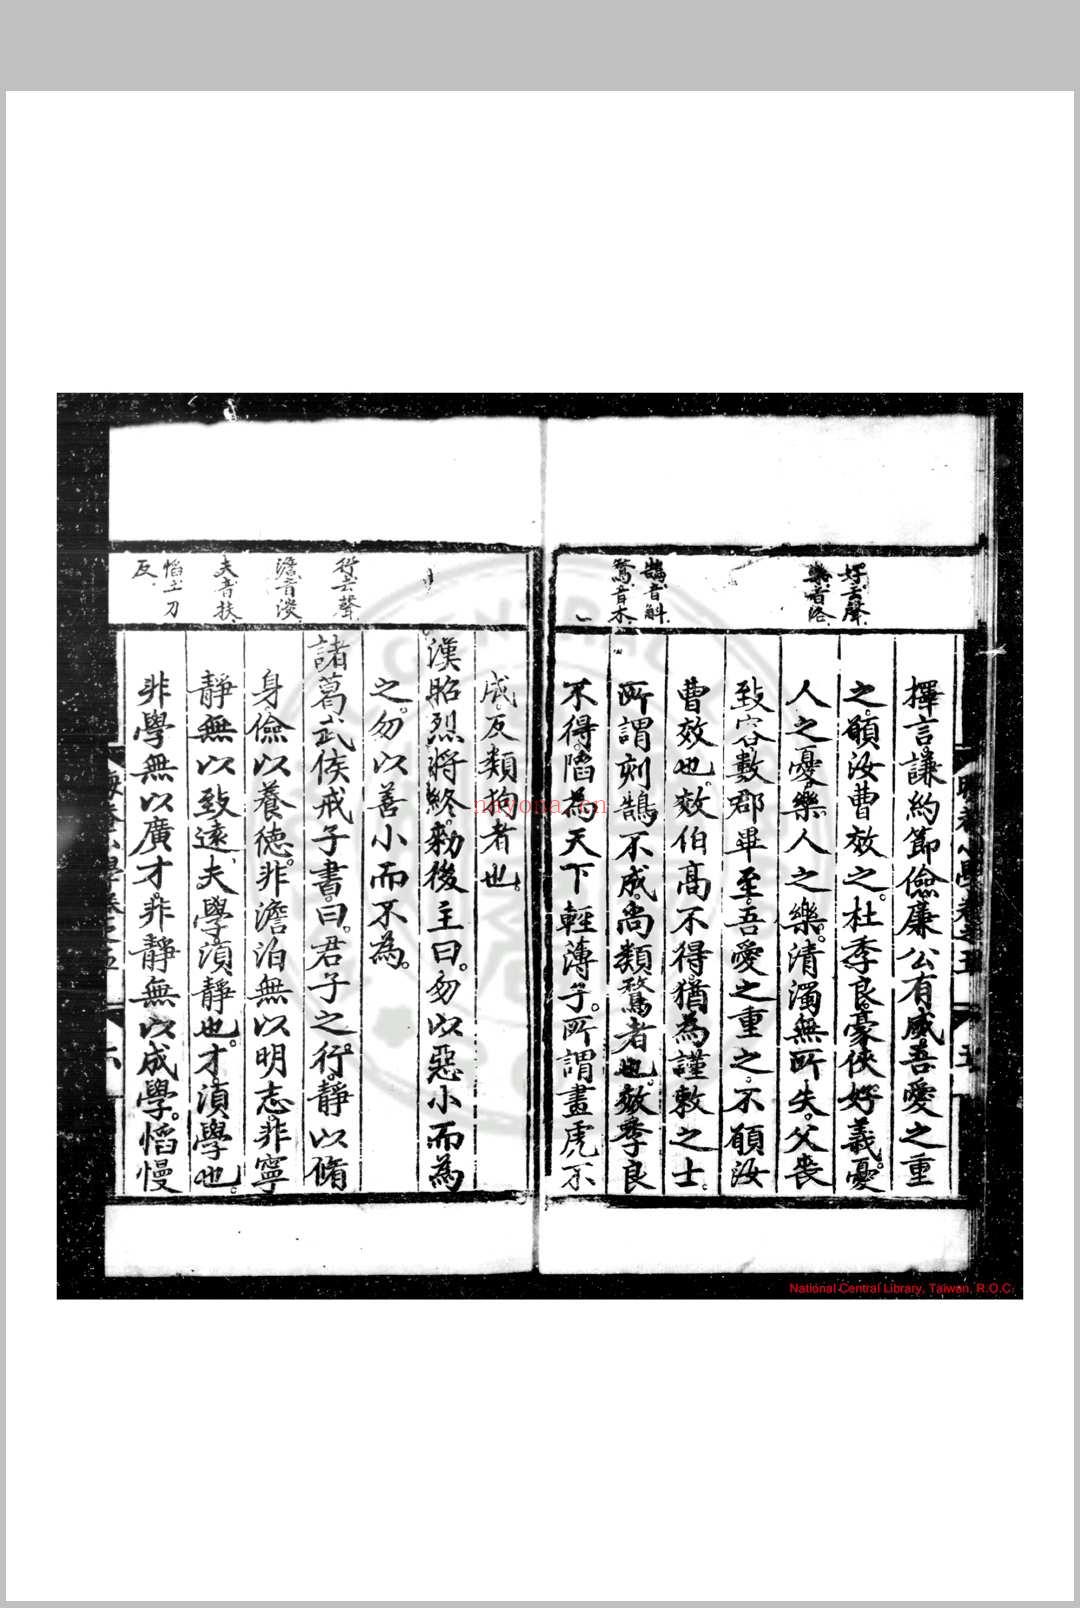 好去聲
樂音洛
鵠音斛
鶩音木
擇言謙約節儉廉公有威吾愛之重
之願汝曹效之杜季良豪俠好義憂
人之憂樂人之樂清濁無所失父喪
致客數郡畢至吾愛之重之不願汝
曹效也效伯高不得猶為謹敕之士
所謂刻鵠不成尚類鶩者也效季良
不得陷為天下輕薄子所謂畫虎不
行去聲
澹音淡
夫音扶
慆土刀
反
成反類狗者也
漢昭烈將終勑後主曰勿以惡小而為
之勿以善小而不為
諸葛武侯戒子書曰君子之行靜以脩
身儉以養德非澹泊無以明志非寧
靜無以致遠夫學湏靜也才湏學也
非學無以廣才非靜無以成學慆慢
nayona.cn
National Central Library, Taiwan, R.O.C.